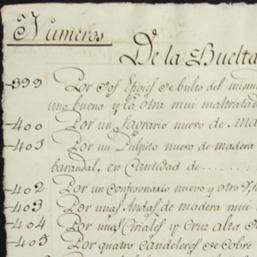 Numeros
De la Buelta
399 Por dos Epoies de bules del mismo
una buena y la otra mui maltratada
400 Por un Sagrario nuevo de Ma
401 Por un Pulpito nuevo de madera
barandal, en Cantidad de . . . . . .
402 Por un Confesonario nuevo y otro
403 Por unas Andas de madera mui
404 Por unos Ciriales y Cruz alta de
405 Por quatro Candeleros de Cobre